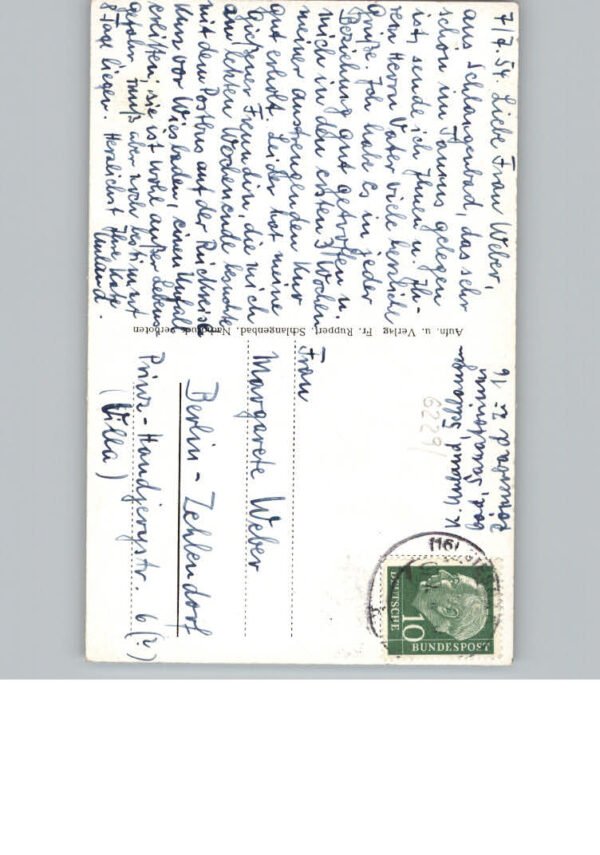 7/7.54. Liebe Frau Weber,
aus Schlangenbad, das sehr
schön im Taunus gelegen
ist, sende ich Ihnen u. Ih-
rem Herrn Vater viele herzliche
Grüße. Ich habe es in jeder
Beziehung gut getroffen u.
mich in den ersten 3 Wochen
meiner anstrengenden Kur
gut erholt. Leider hat meine
Freundin, die mich
am letzten Wochenende besuchte
mit dem Postbus auf der Rückreise
kurz vor Wiesbaden, einen Unfall
erlitten, sie ist wohl außer Lebens-
gefahr, muß aber noch bestimmt
8 Tage liegen. Herzlichst Ihre Käte
Uuland.
Aufn. u. Verlag Fr. Ruppert, Schlangenbad. Nachdruck verboten
K. Uuland Schlangen
bad, Sanatorium
Römerbad Zi 16
6229/
Frau
Margarete Weber
Berlin - Zehlendorf
Prinz-Handjerystr. 6 (?)
(Villa)
(16)
10
DEUTSCHE
BUNDESPOST